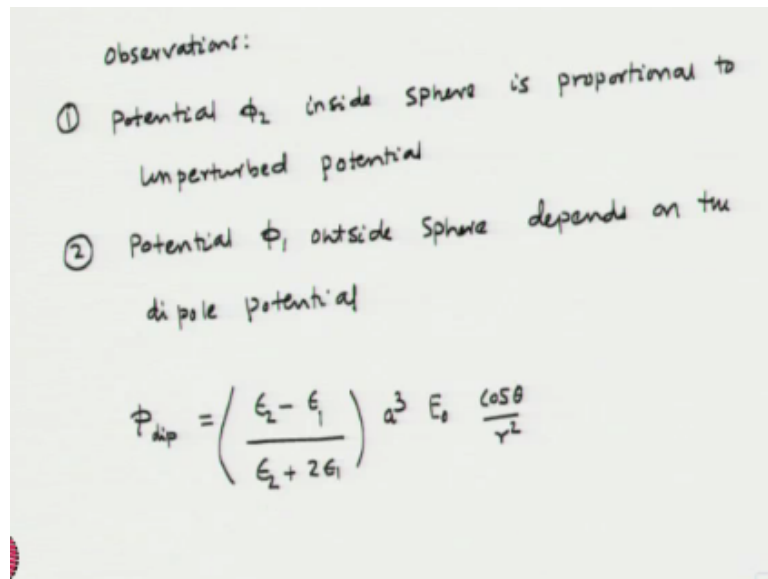 Observations:
① Potential ϕ₂ inside sphere is proportional to
unperturbed potential
② Potential ϕ₁ outside sphere depends on the
dipole potential
ϕ_dip = ( (ϵ₂ - ϵ₁) / (ϵ₂ + 2ϵ₁) ) a³ E₀ cosθ / r²